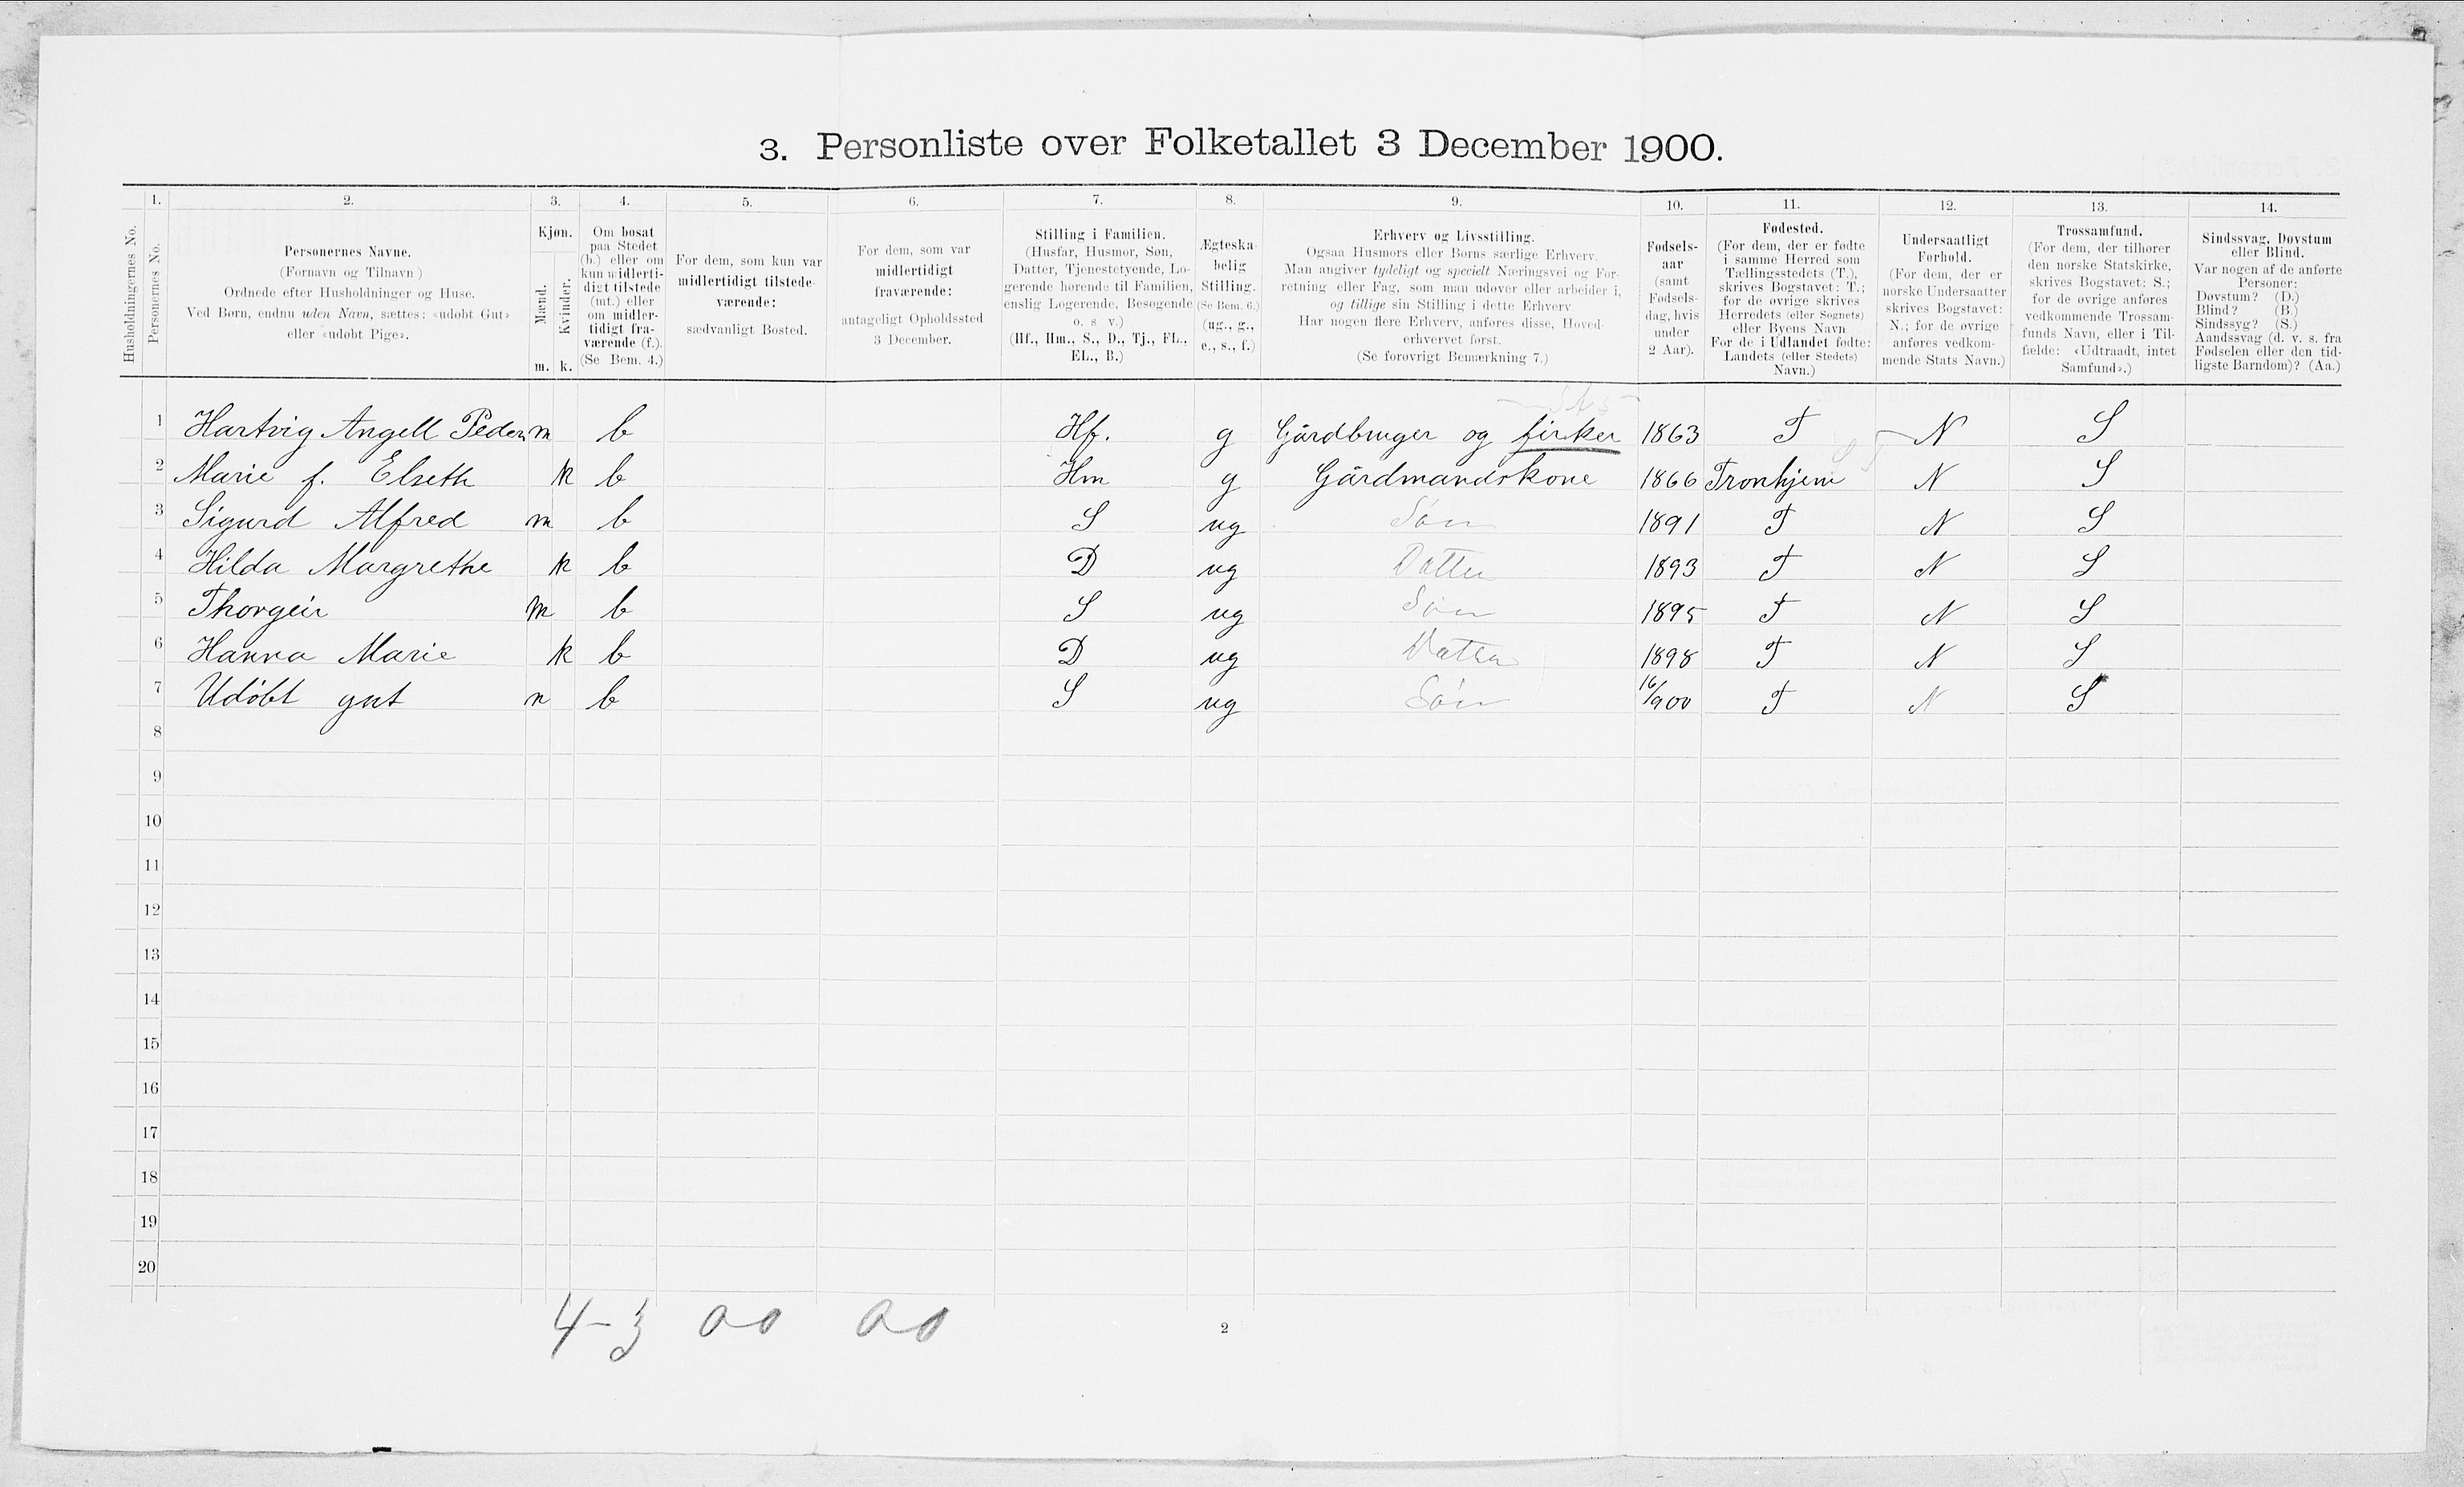 3. Personliste over Folketallet 3 December 1900.
1. 2. 3. 4. 5. 6. 7. 8. 9. 10. 11. 12. 13. 14.
Husholdningernes No.
Personernes No.
Personernes Navne.
(Fornavn og Tilnavn)
Ordnede efter Husholdninger og Huse.
Ved Børn, endnu uden Navn, sættes: «udøbt Gut»
eller «udøbt Pige».
Kjøn.
Mænd.
Kvinder.
m. k.
Om bosat
paa Stedet
(b.) eller om
kun midlerti-
digt tilstede
(mt.) eller
om midler-
tidigt fra-
værende (f.).
(Se Bem. 4.)
For dem, som kun var
midlertidigt tilstede-
værende:
sædvanligt Bosted.
For dem, som var
midlertidigt
fraværende:
antageligt Opholdssted
3 December.
Stilling i Familien.
(Husfar, Husmor, Søn,
Datter, Tjenestetyende, Lo-
gerende hørende til Familien,
enslig Logerende, Besøgende
o. s v.)
(Hf., Hm., S., D., Tj., FL.,
EL., B.)
Ægteska-
belig
Stilling.
(Se Bem. 6.)
(ug., g.,
e., s., f.)
Erhverv og Livsstilling.
Ogsaa Husmors eller Børns særlige Erhverv.
Man angiver tydeligt og specielt Næringsvei og For-
retning eller Fag, som man udøver eller arbeider i,
og tillige sin Stilling i dette Erhverv.
Har nogen flere Erhverv, anføres disse, Hoved-
erhvervet først.
(Se forøvrigt Bemærkning 7.)
Fødsels-
aar
(samt
Fødsels-
dag, hvis
under
2 Aar).
Fødested.
(For dem, der er fødte
i samme Herred som
Tællingsstedets (T.),
skrives Bogstavet: T.;
for de øvrige skrives
Herredets (eller Sognets)
eller Byens Navn
For de i Udlandet fødte:
Landets (eller Stedets)
Navn.)
Undersaatligt
Forhold.
(For dem, der er
norske Undersaatter
skrives Bogstavet:
N.; for de øvrige
anføres vedkom-
mende Stats Navn.)
Trossamfund.
(For dem, der tilhører
den norske Statskirke,
skrives Bogstavet: S.;
for de øvrige anføres
vedkommende Trossam-
funds Navn, eller i Til-
fælde: «Udtraadt, intet
Samfund».)
Sindssvag, Døvstum
eller Blind.
Var nogen af de anførte
Personer:
Døvstum? (D.)
Blind? (B.)
Sindssyg? (S.)
Aandssvag (d. v. s. fra
Fødselen eller den tid-
ligste Barndom)? (Aa.)
1 Hartvig Angell Peders m b Hf. g Gårdbruger og fisker 1863 T N S
2 Marie f. Elseth k b Hm g Gårdmandskone 1866 Tronhjem N S
3 Sigurd Alfred m b S ug Søn 1891 T N S
4 Hilda Margrethe k b D ug Datter 1893 T N S
5 Thorgeir m b S ug Søn 1895 T N S
6 Hanna Marie k b D ug Datter 1898 T N S
7 Udøbt gut m b S ug Søn 16/9 00 T N S
8
9
10
11
12
13
14
15
16
17
18
19
20
4-3 00 00
2